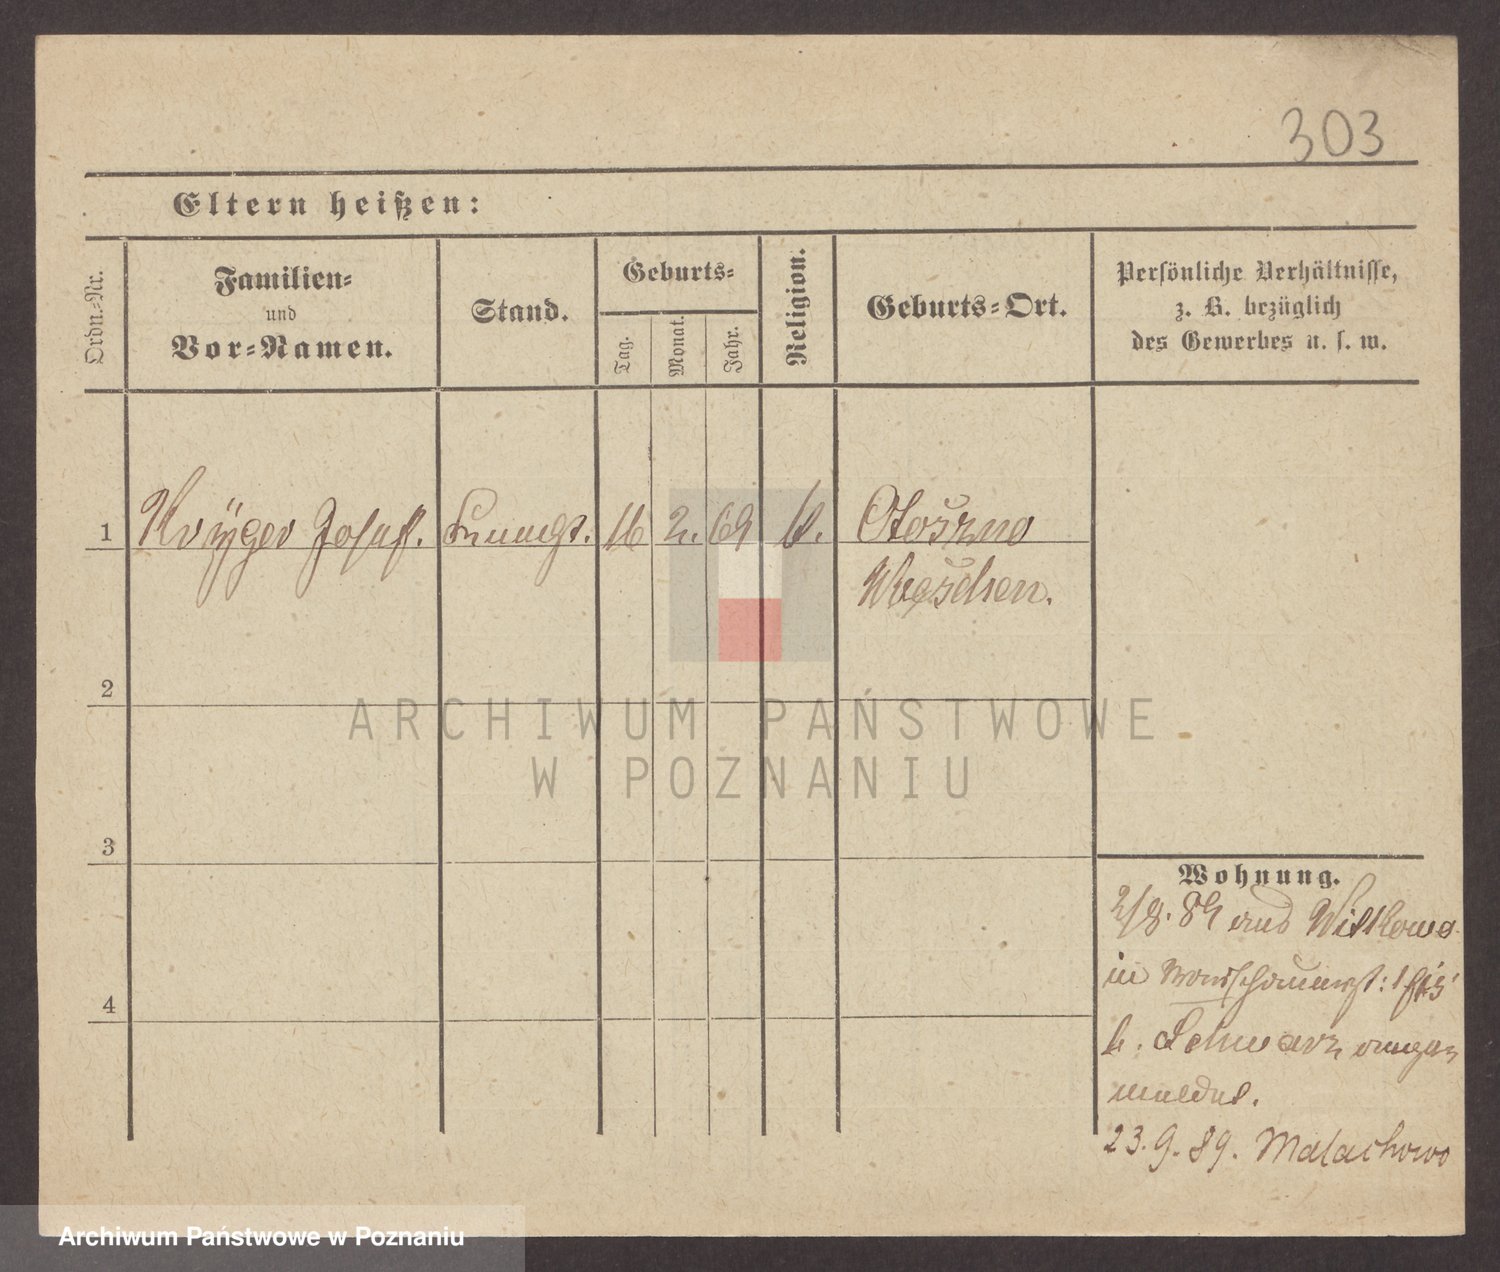 303
Eltern heißen:
Ordn.-Nr.
Familien-
und
Vor-Namen.
Stand.
Geburts-
Tag.
Monat.
Jahr.
Religion.
Geburts-Ort.
Persönliche Verhältnisse,
z. B. bezüglich
des Gewerbes u. s. w.
1 Krÿger Josef. 16 2. 69 k. Otoszno
Wreschen.
2
3
4
Wohnung.
2/8. 89 aus Witkowo
in
b. Schwarz ange
meldet.
23. 9. 89. Malachowo
ARCHIWUM PAŃSTWOWE
W POZNANIU
Archiwum Państwowe w Poznaniu